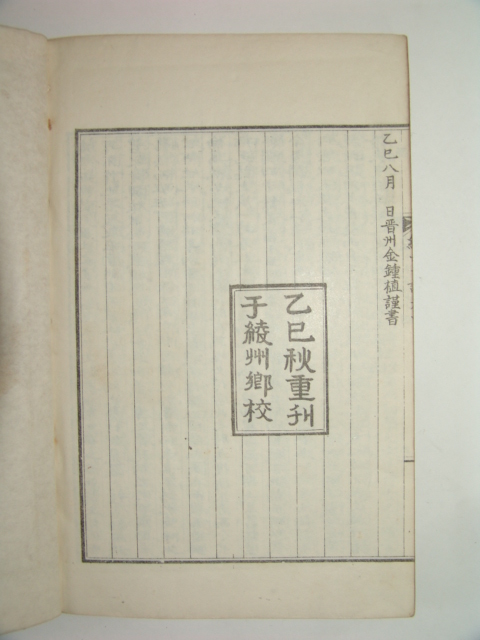 乙巳八月 日晋州金鍾植謹書
乙巳秋重刊
于綾州鄕校